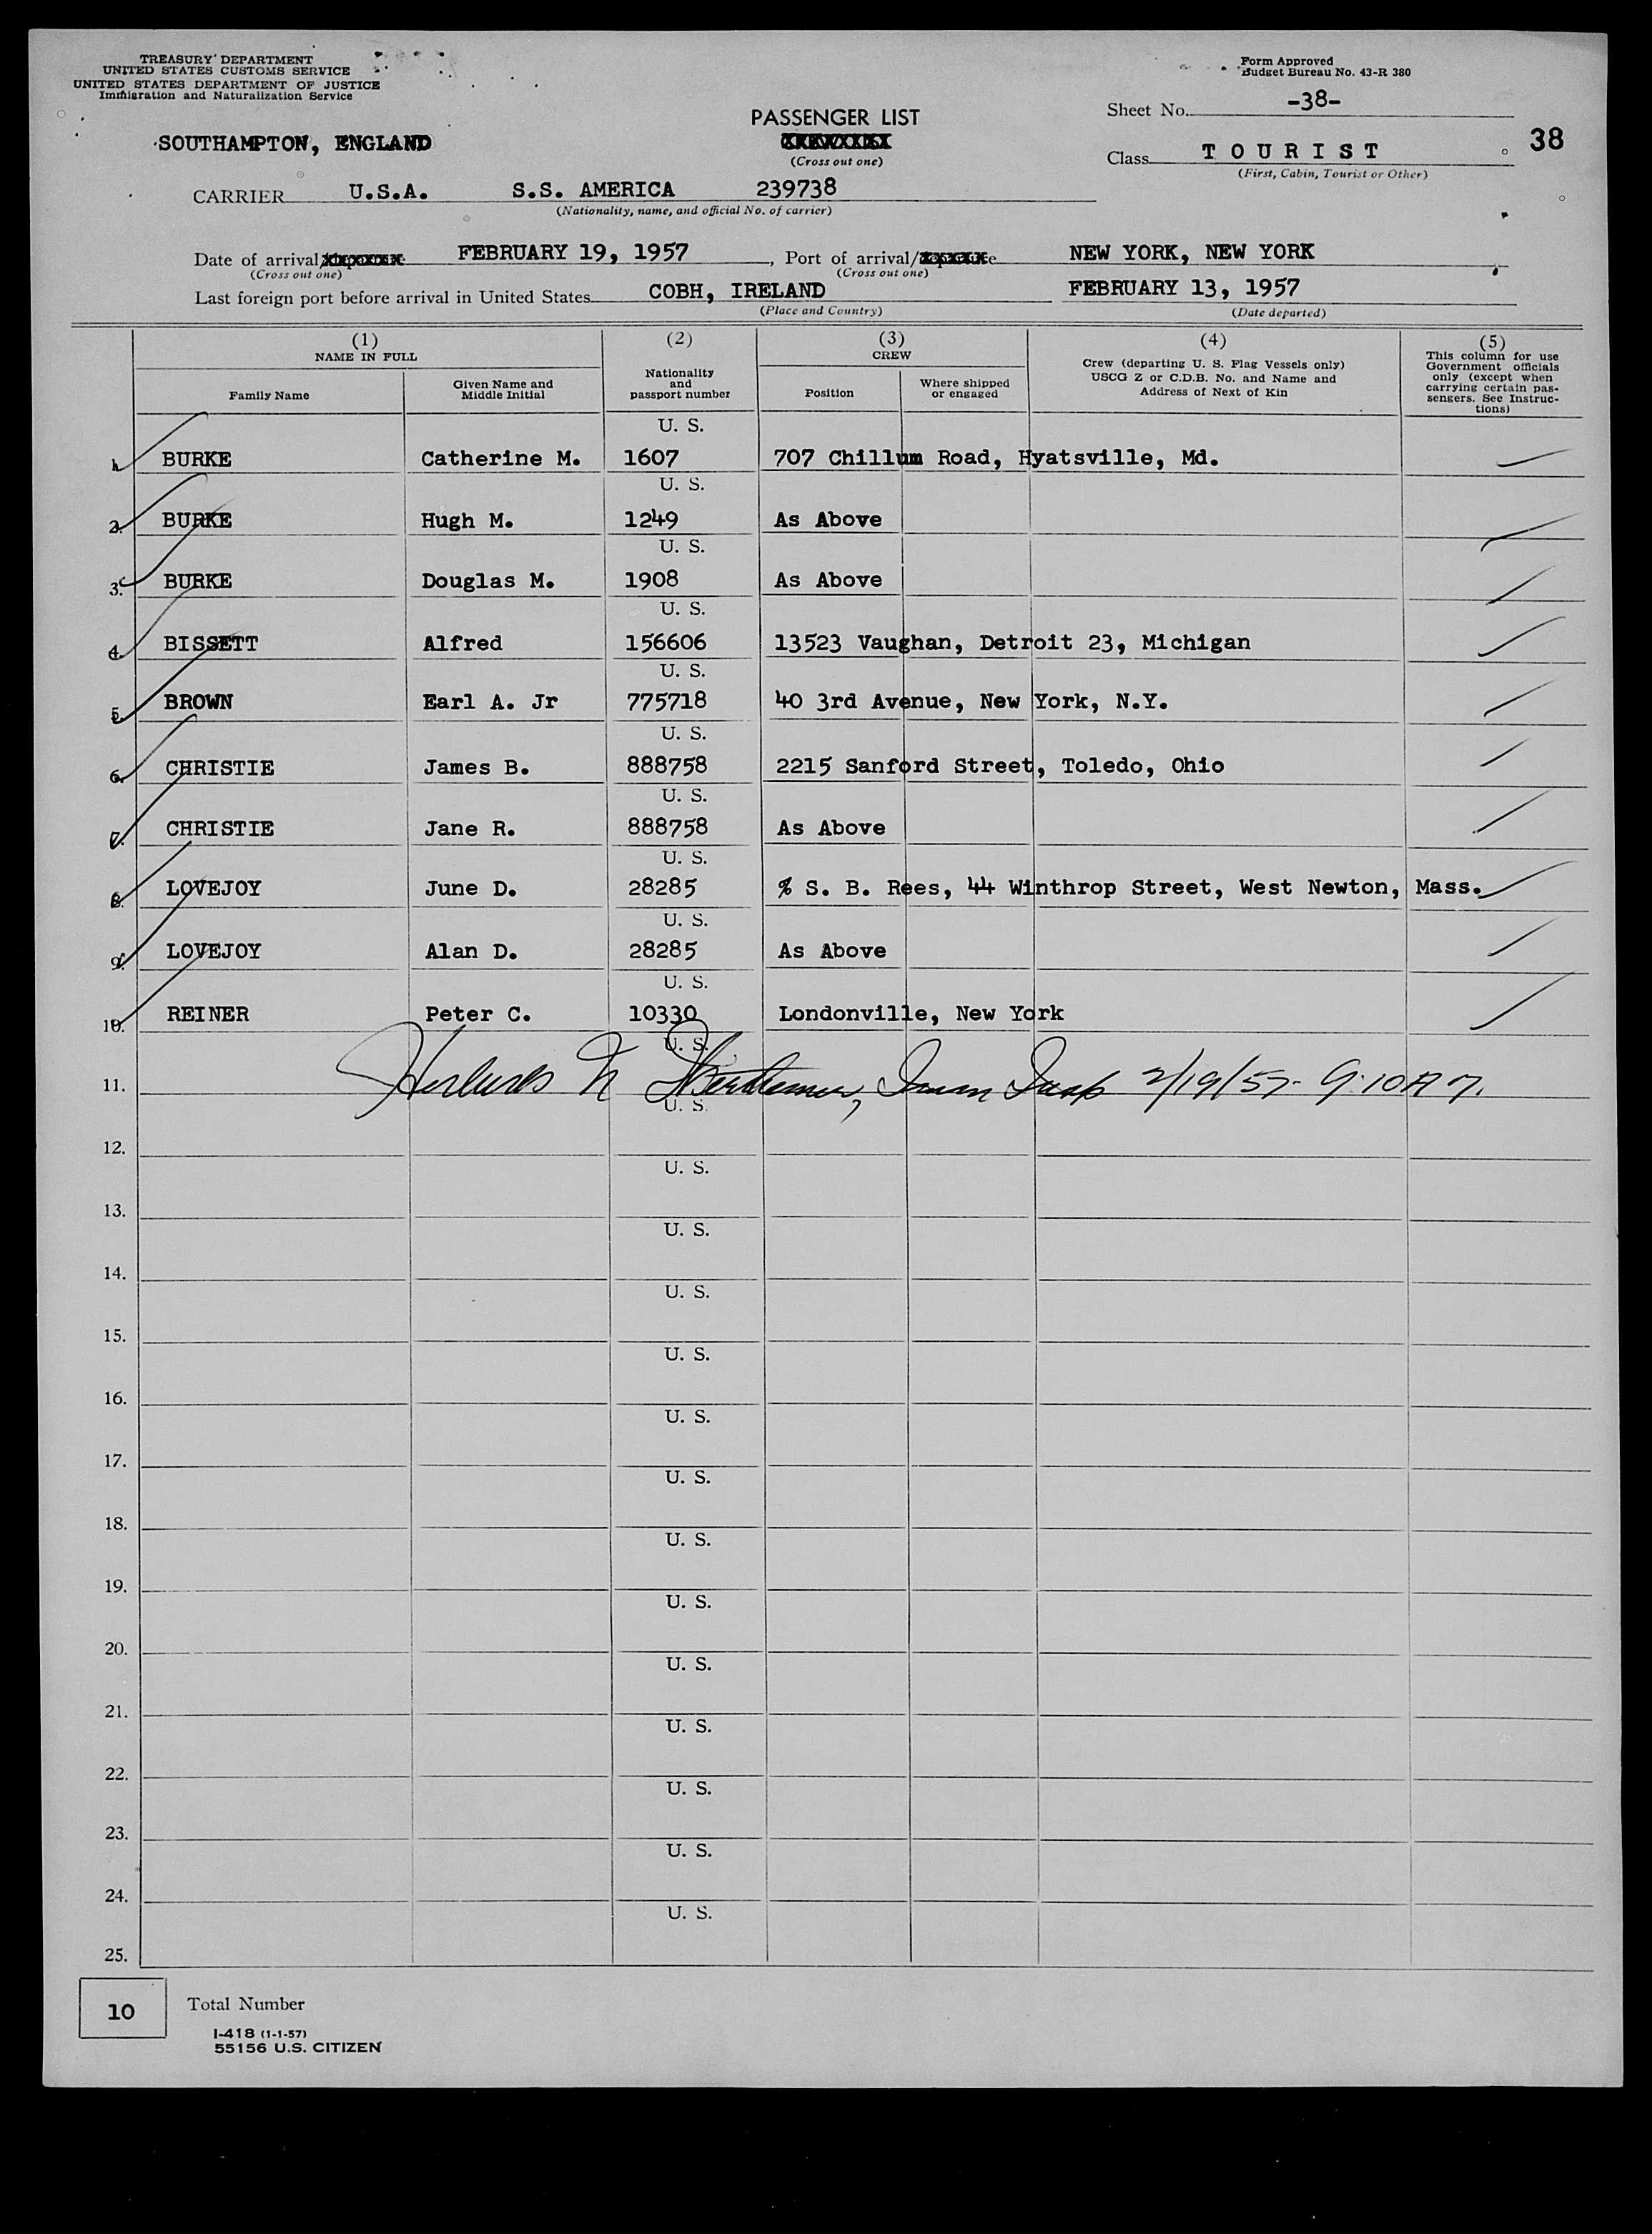 TREASURY DEPARTMENT
UNITED STATES CUSTOMS SERVICE
UNITED STATES DEPARTMENT OF JUSTICE
Immigration and Naturalization Service
Form Approved
Budget Bureau No. 43-R 380
Sheet No. -38-
38
PASSENGER LIST
(Cross out one)
SOUTHAMPTON, ENGLAND
Class T O U R I S T
(First, Cabin, Tourist or Other)
CARRIER U.S.A. S.S. AMERICA 239738
(Nationality, name, and official No. of carrier)
Date of arrival FEBRUARY 19, 1957, Port of arrival/ NEW YORK, NEW YORK
(Cross out one) (Cross out one)
Last foreign port before arrival in United States COBH, IRELAND FEBRUARY 13, 1957
(Place and Country) (Date departed)
(1) NAME IN FULL
Family Name
Given Name and Middle Initial
(2) Nationality and passport number
(3) CREW
Position
Where shipped or engaged
(4) Crew (departing U. S. Flag Vessels only) USCG Z or C.D.B. No. and Name and Address of Next of Kin
(5) This column for use Government officials only (except when carrying certain passengers. See Instructions)
U. S.
1. BURKE Catherine M. 1607 707 Chillum Road, Hyatsville, Md.
U. S.
2. BURKE Hugh M. 1249 As Above
U. S.
3. BURKE Douglas M. 1908 As Above
U. S.
4. BISSETT Alfred 156606 13523 Vaughan, Detroit 23, Michigan
U. S.
5. BROWN Earl A. Jr 775718 40 3rd Avenue, New York, N.Y.
U. S.
6. CHRISTIE James B. 888758 2215 Sanford Street, Toledo, Ohio
U. S.
7. CHRISTIE Jane R. 888758 As Above
U. S.
8. LOVEJOY June D. 28285 % S. B. Rees, 44 Winthrop Street, West Newton, Mass.
U. S.
9. LOVEJOY Alan D. 28285 As Above
U. S.
10. REINER Peter C. 10330 Londonville, New York
U. S.
11. 2/19/57- 9:10A M.
U. S.
12.
U. S.
13.
U. S.
14.
U. S.
15.
U. S.
16.
U. S.
17.
U. S.
18.
U. S.
19.
U. S.
20.
U. S.
21.
U. S.
22.
U. S.
23.
U. S.
24.
U. S.
25.
10 Total Number
I-418 (1-1-57)
55156 U.S. CITIZEN